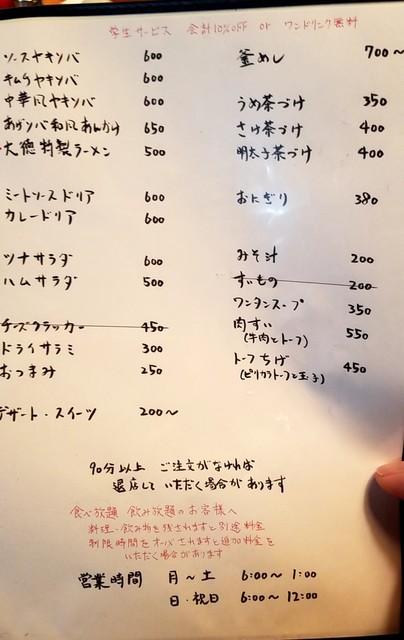 学生サービス 会計10%OFF or ワンドリンク無料
ソースヤキソバ 600
キムチヤキソバ 600
中華風ヤキソバ 600
あげソバ和風あんかけ 650
大徳特製ラーメン 500
ミートソースドリア 600
カレードリア 600
ツナサラダ 600
ハムサラダ 500
チーズクラッカー 450
ドライサラミ 300
おつまみ 250
デザート・スイーツ 200～
釜めし 700～
うめ茶づけ 350
さけ茶づけ 400
明太子茶づけ 400
おにぎり 380
みそ汁 200
すいもの 200
ワンタンスープ 350
肉すい 550
(牛肉とトーフ)
トーフちげ 450
(ピリカラトーフと玉子)
90分以上 ご注文がなければ
退店して いただく場合が あります
食べ放題 飲み放題のお客様へ
料理・飲み物を残されますと別途料金
制限時間をオーバされますと追加料金を
いただく場合があります
営業時間 月～土 6:00～1:00
日・祝日 6:00～12:00